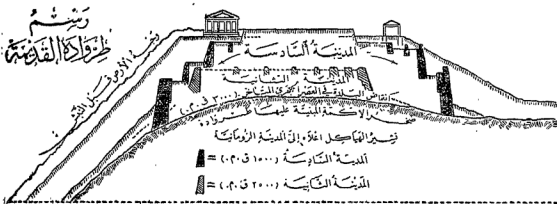 رسم
طروادة القديمة
الأرض قبل النبش
المدينة السادسة
المدينة الثانية
البلدة في العصر الحجري المتأخر (٣٠٠٠ ق.م.)
صخر الاكمة المبنية عليها طروادة
تشير الهياكل اعلاه إلى المدينة الرومانية
= المدينة السادسة (١٥٠٠ ق.م.)
= المدينة الثانية (٢٥٠٠ ق.م.)